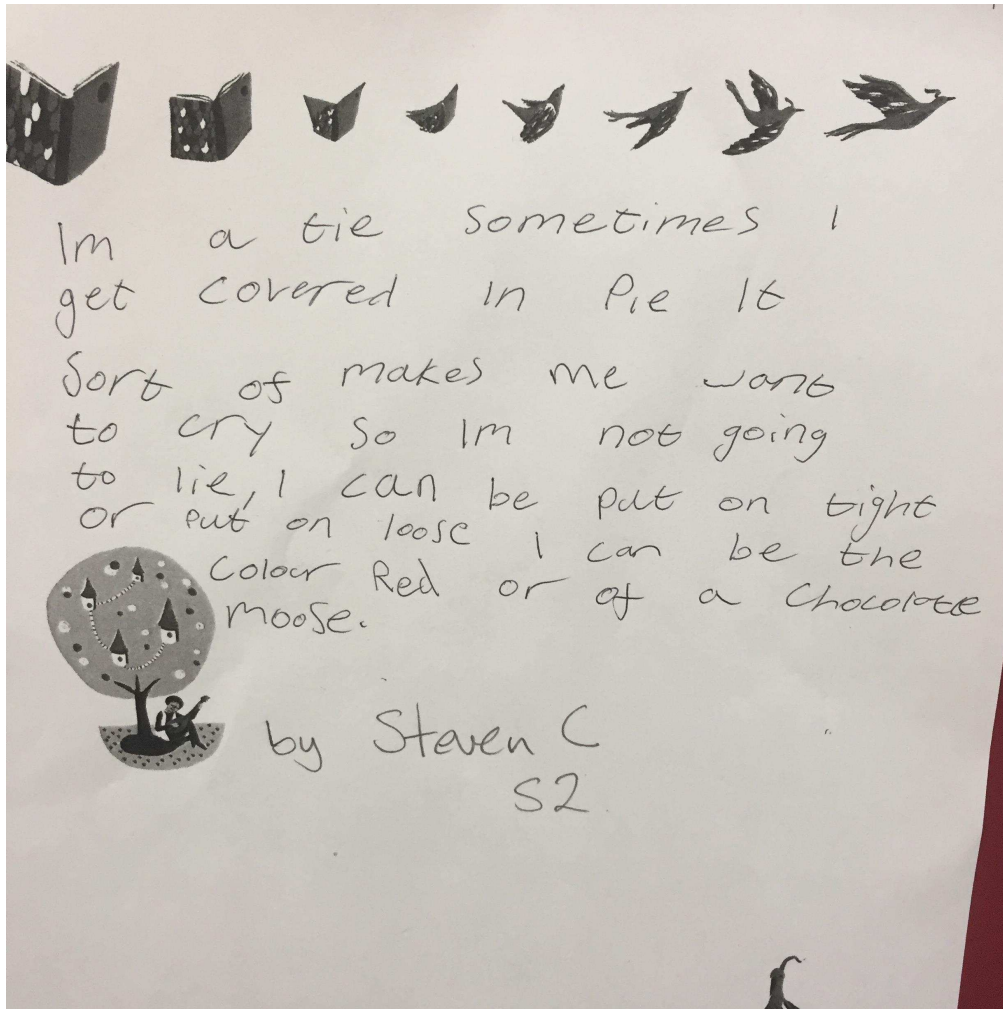 Im a tie sometimes I
get covered in Pie It
Sort of makes me want
to cry so Im not going
to lie, I can be put on tight
or put on loose I can be the
colour Red or of a Chocolate
moose.
by Steven C
S2